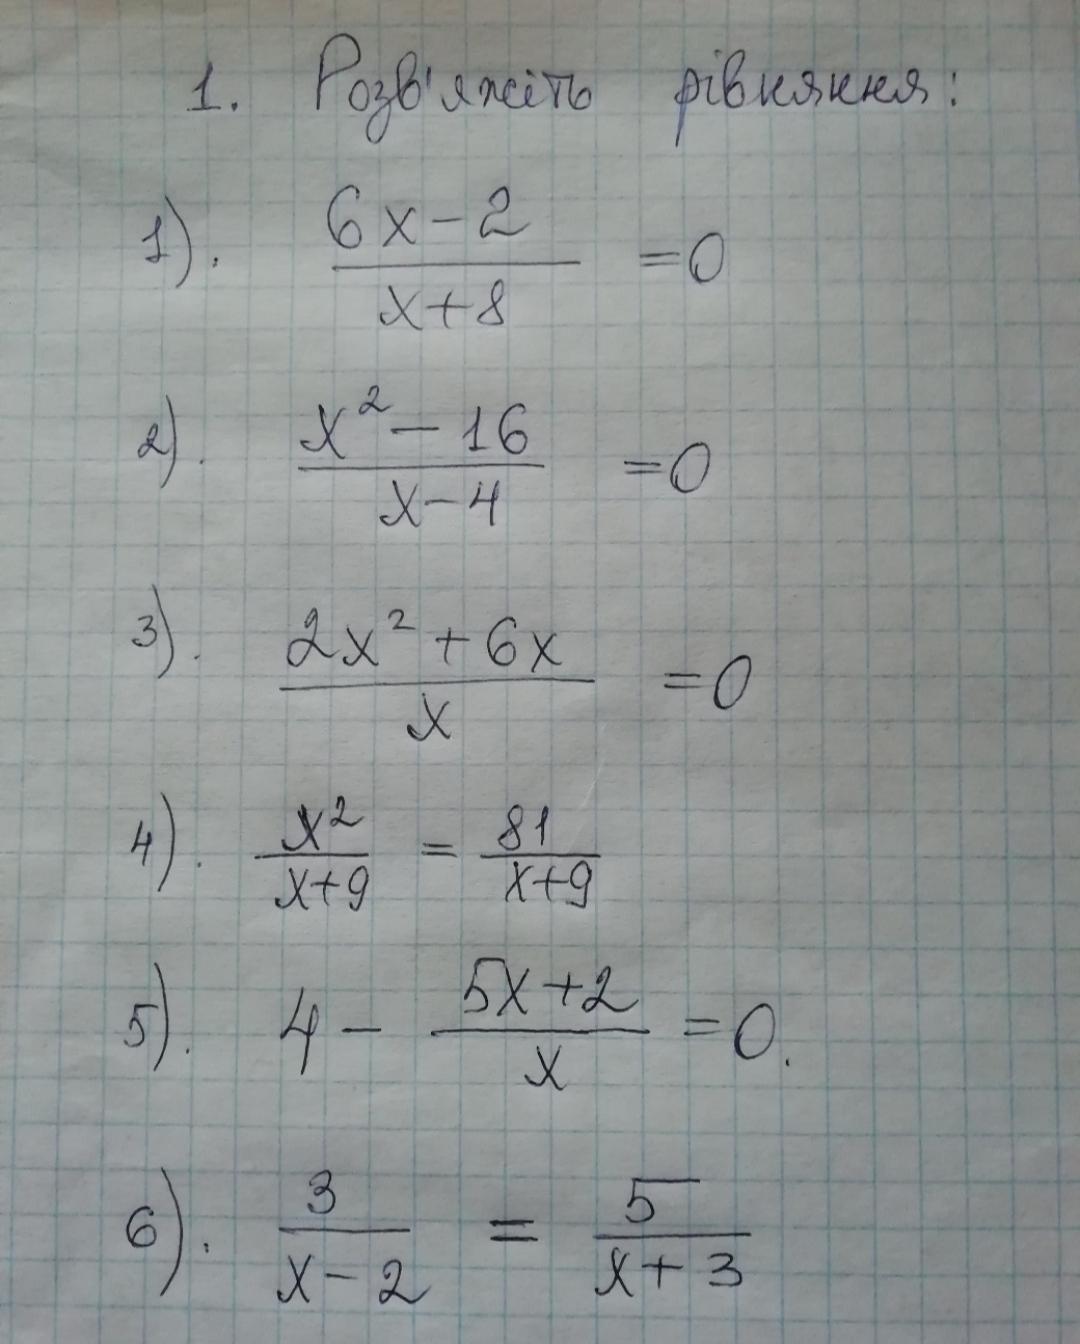 1. Розв'яжіть рівняння:
1). (6x-2)/(x+8) =0
2). (x²-16)/(x-4) =0
3). (2x²+6x)/x =0
4). x²/(x+9) = 81/(x+9)
5). 4 - (5x+2)/x =0.
6). 3/(x-2) = 5/(x+3)